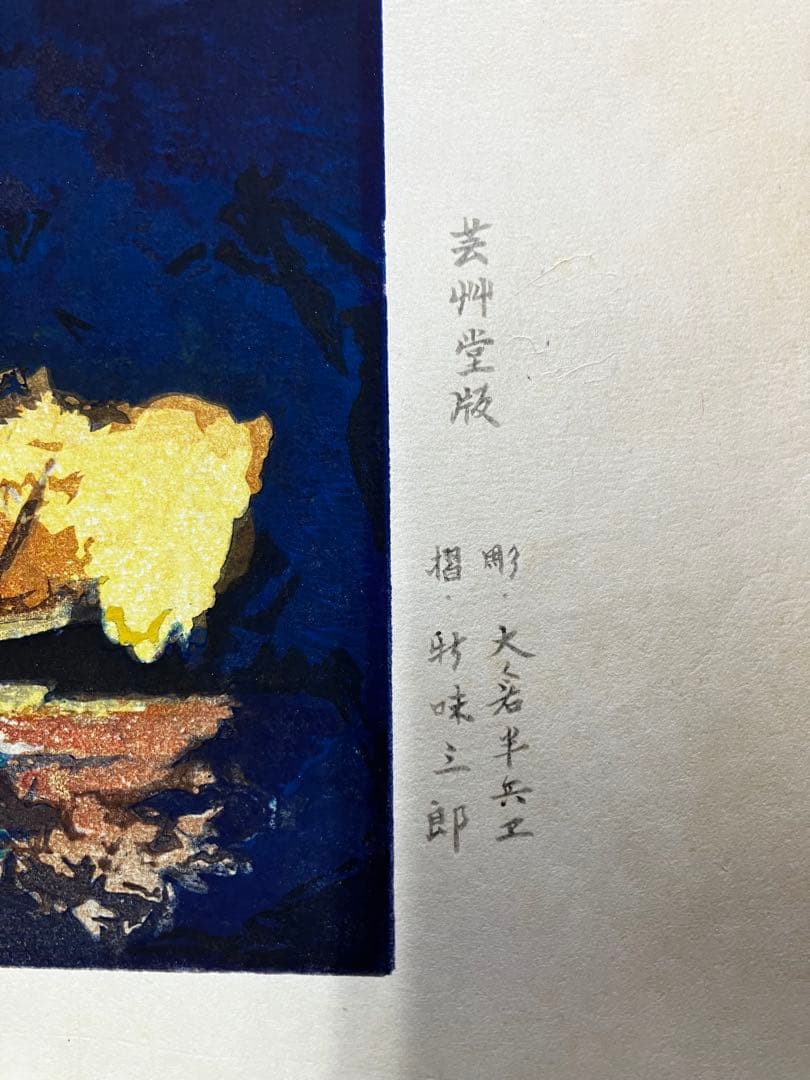 芸艸堂版
彫・大倉半兵ヱ
摺・新味三郎